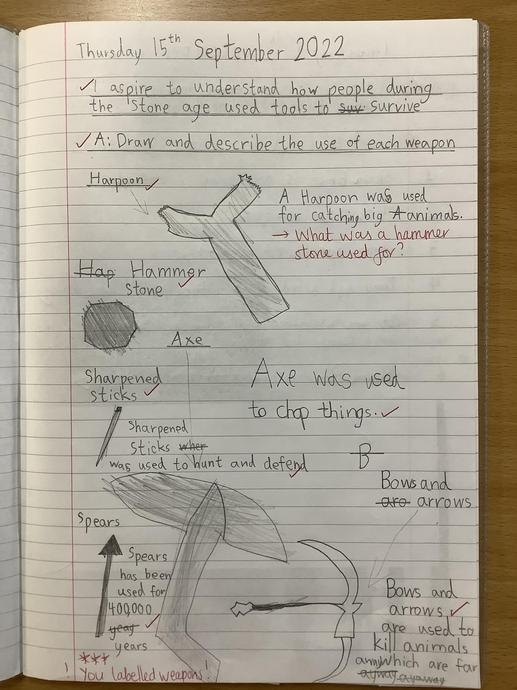 Thursday 15th September 2022
I aspire to understand how people during
the stone age used tools to suv survive
A: Draw and describe the use of each weapon
Harpoon
A Harpoon was used
for catching big Aanimals.
→ What was a hammer
stone used for?
Hap Hammer
stone
Axe
Sharpened
sticks
Axe was used
to chop things.
Sharpened
Sticks wher
was used to hunt and defend
B
Bows and
aro arrows
Spears
Spears
has been
used for
400,000
yeay
years
Bows and
arrows
are used to
kill animals
which are far
*** 
You labelled weapons!